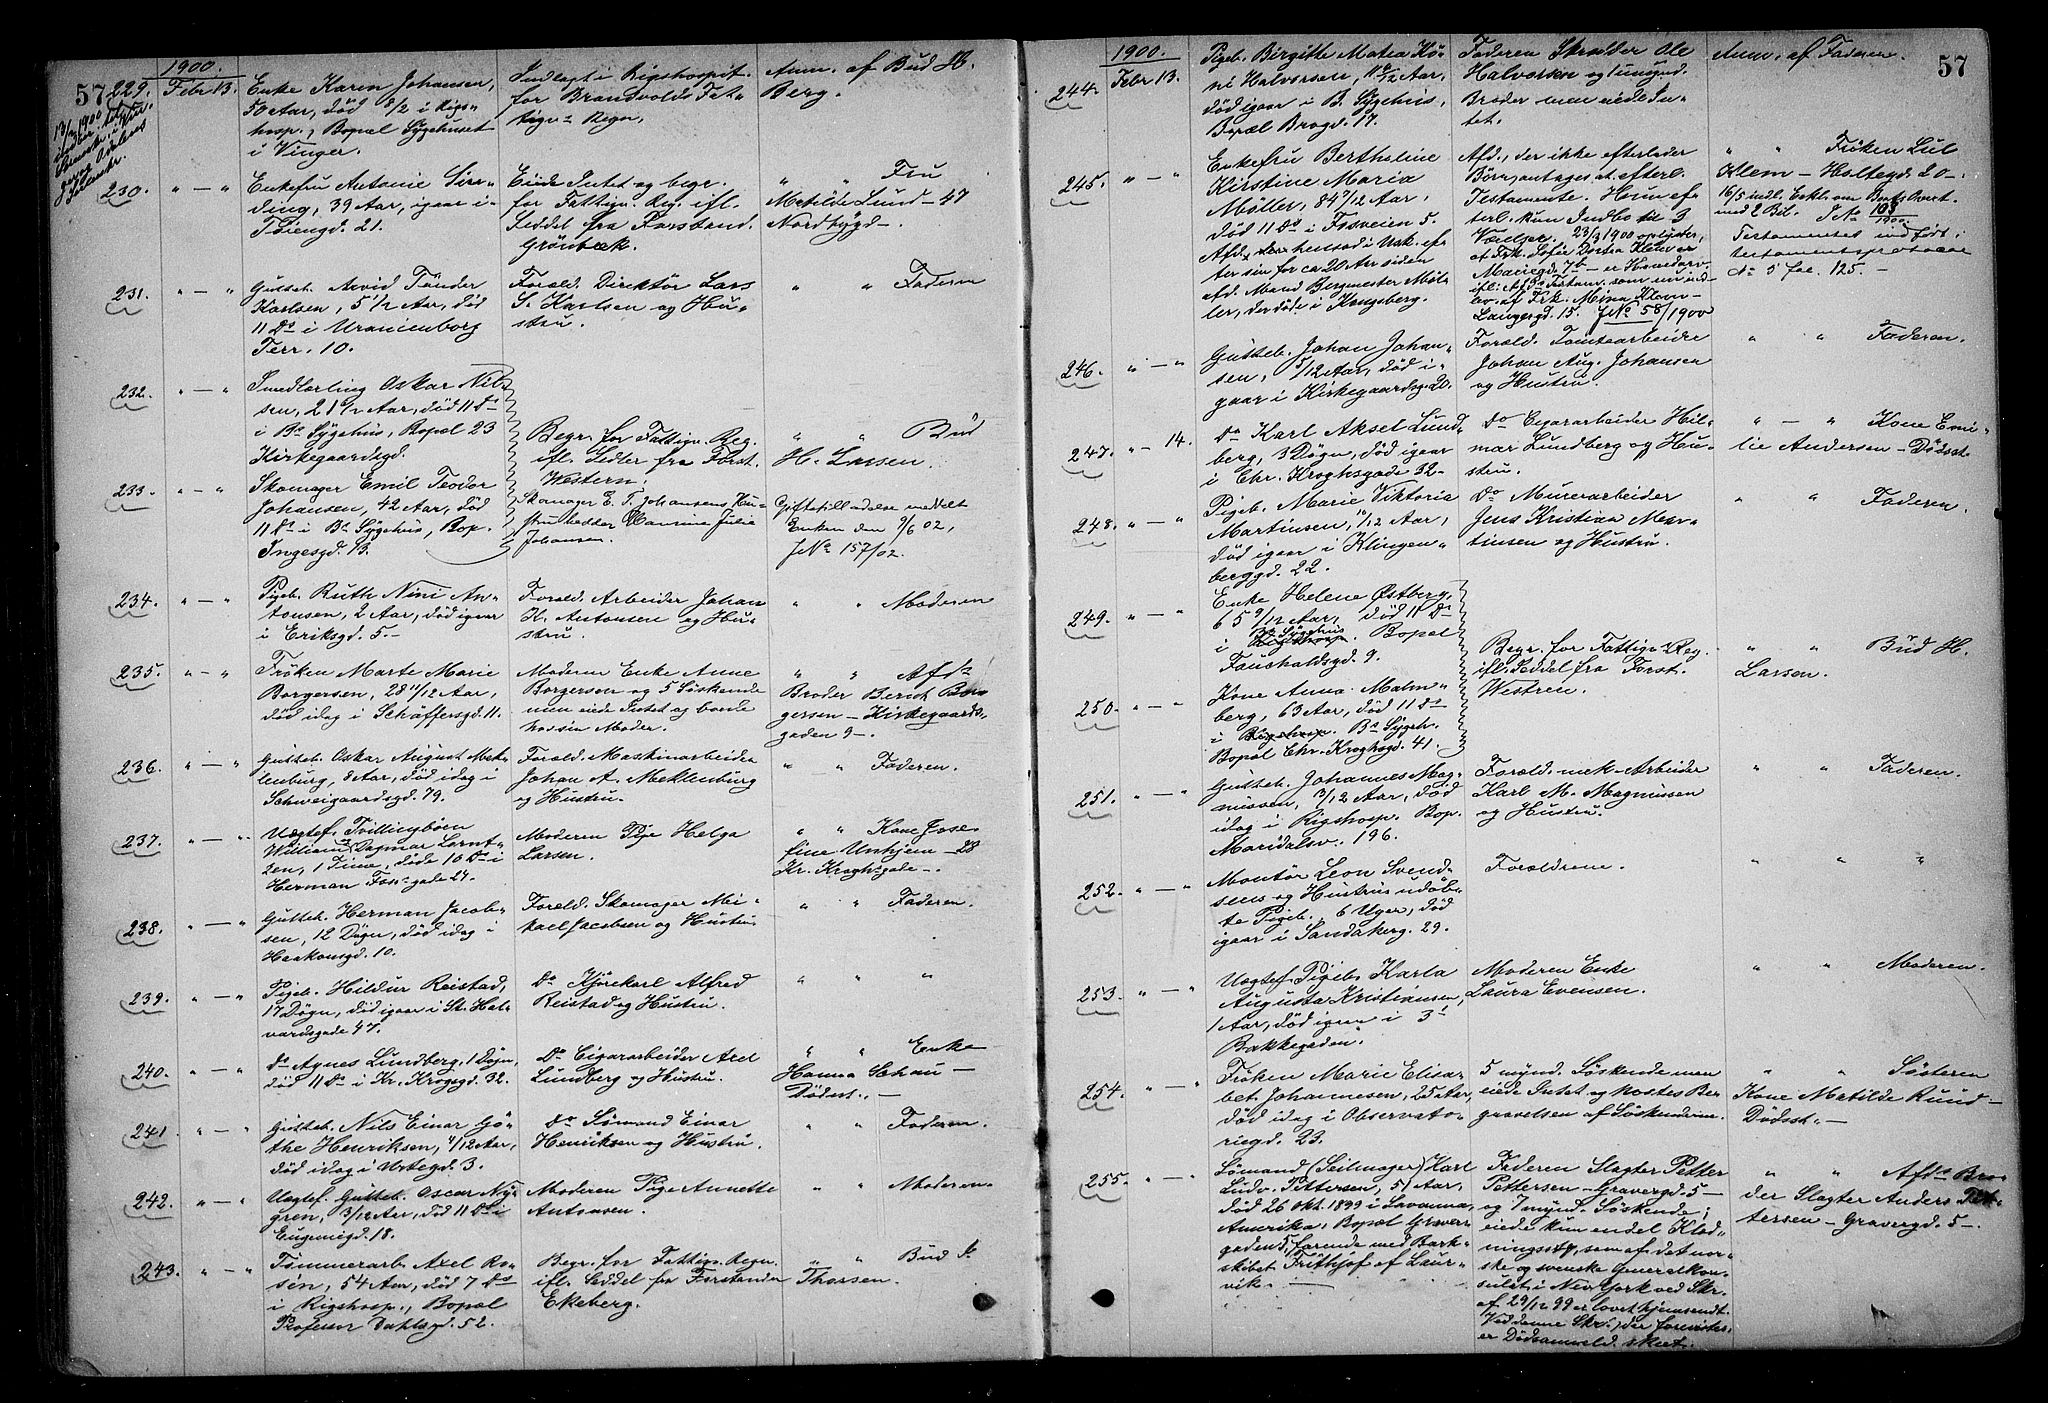 57
1900.
229.
Febr 13.
Enke Karen Johansen,
50 Aar, død 8/2 i Rigs-
hosp., Bopæl Sygehuset
i Vinger.
Indlagt i Rigshospit.
for Brandvolds Fat-
tigv. Regn.
Anm. af Bud H.
Berg.
13/2 1900
230.
" — "
Enkefru Antonie Sin-
ding, 39 Aar, igaar i
Tøiengd. 21.
Eiede Intet og begr.
for Fattigv. Reg. ifl.
Seddel fra Forstand.
Grönbæk.
" " Fru
Matilde Lund - 47
Nordbygd -
231.
" — "
Gutteb. Arvid Tönder
Karlsen, 5 1/2 Aar, død
11 Ds i Uranienborg
Terr. 10.
Foræld. Direktör Lars
S. Karlsen og Hu-
stru.
" " Faderen
232.
" — "
Smedlærling Oskar Nil-
sen, 21 1/2 Aar, død 11 Ds
i Bs Sygehus, Bopæl 23
Kirkegaardsgd.
Begr. for Fattigv. Reg.
ifl. Sedler fra Forst.
Western.
" " Bud
H. Larsen.
233.
" — "
Skomager Emil Teodor
Johansen, 42 Aar, død
11 Ds i Bs Sygehus, Bop.
Ingesgd. 13.
Skomager E. T. Johansens Hu-
stru hedder Hansine Julie
Johansen.
Giftetilladelse meddelt
Enken den 7/6 02,
J No 157/02.
234.
" — "
Pigeb. Ruth Nini An-
tonsen, 2 Aar, død igaar
i Eriksgd. 5.-
Foræld. Arbeider Johan
K. Antonsen og Hu-
stru.
" " Moderen
235.
" — "
Frøken Marte Marie
Borgersen, 28 11/12 Aar,
død idag i Schäffersgd. 11.
Moderen Enke Anne
Borgersen og 5 Søskende
men eiede Intet og boede
hos sin Moder.
" " Afds
Broder Bernt Bor-
gersen - Kirkegaards-
gaden 9 -.
236.
" — "
Gutteb. Oskar August Mek-
lenburg, 8 Aar, død idag i
Schweigaardsgd. 79.
Foræld. Maskinarbeider
Johan A. Meklenburg
og Hustru.
" " Faderen.
237.
" — "
Uægtef. Tvillingbörn
William & Dagmar Lornt-
zen, 1 Time, døde 10 Ds i
Herman Fossgade 24.
Moderen Pige Helga
Larsen.
" " Kone Jose-
fine Unhjem - 28
Kr. Kroghsgade -.
238.
" — "
Guttebr. Herman Jacob-
sen, 12 Døgn, død idag i
Haakonsgd. 10.
Foræld. Skomager Mi-
kael Jacobsen og Hustru
" " Faderen.
239.
" — "
Pigeb. Hildur Reistad,
17 Døgn, død igaar i St. Hal-
vardsgade 47.
Do Kjørekarl Alfred
Reistad og Hustru.
" " "
240.
" — "
Do Agnes Lundberg, 1 Døgn,
død 11 Ds i Kr. Krogsgd. 32.
Do Cigararbeider Axel
Lundberg og Hustru.
" " Enke
Hanna Schau -
Dødsst. -
241.
" — "
Guttebr. Nils Einar Gö-
the Henriksen, 4/12 Aar,
død idag i Urtegd. 3.
Do Sømand Einar
Henriksen og Hustru.
" " Faderen.
242.
" — "
Uægtef. Guttebr. Oscar Ny-
gren, 3/12 Aar, død 11 Ds i
Eugeniegd. 18.
Moderen Pige Annette
Antonsen.
" " Moderen.
243.
" — "
Tømmerarb. Axel Ro-
sén, 54 Aar, død 7 Ds
i Rigshosp., Bopæl
Professor Dahlsgd. 52.
Begr. for Fattigv. Regn.
ifl. Seddel fra Forstander
Ekeberg.
" " Bud
Thorsen.
1900.
57
244.
Febr 13.
Pigeb. Birgitte Matea Kö-
ni Halvorsen, Aar,
død igaar i B. Sygehus,
Bopæl Brogd. 17.
Faderen Skrædder Ole
Halvorsen og 1 umynd.
Broder men eiede In-
tet.
Anm. af Faderen.
245.
" — "
Enkefru Berthaline
Kirstine Maria
Møller, 84 7/12 Aar,
død 11 Ds i Fosveien 5.
Afd., der hensad i Usk. ef-
ter sin for ca 20 Aar siden
afd. Mand Bergmester Möl-
ler, der døde i Kongsberg.
Afd., der ikke efterlader
Børn, antages at efterl.
Testamente. Hun ef-
terl. kun Indbo til 3
Væelser. 23/3 1900 oplyster,
at Frk. Sofie Dorthea Klem er
Mariegd. 7b - er Hovedarv.
ifl. Afds Testam. som nu ind-
lev. af Frk. Mina Klem -
Langesgd. 15. J No 58/1900
" " Frøken Lul
Klem - Holtegd. 20 -
16/5 indl. Erkl. om Boets Overt.
med 2 Bil. J No 103/1900.
Testamentet indført i
testamentsprotocol
No 5 fol. 125. -
246.
" — "
Guttebr. Johan Johan-
sen, 5/12 Aar, død i-
gaar i Kirkegaardsg. 20.
Foræld. Tomtearbeider
Johan Aug. Johansen
og Hustru.
" " Faderen.
247.
" - 14.
Do Karl Aksel Lund-
berg, 3 Døgn, død igaar
i Chr. Kroghsgade 32-
Do Cigararbeider Hil-
mar Lundberg og Hu-
stru.
" — " Kone Emi-
lie Andersen - Dødsst.
248.
" — "
Pigeb. Marie Viktoria
Martinsen, 10/12 Aar,
død igaar i Klingen-
berggd. 22.
Do Murerarbeider
Jens Kristian Mar-
tinsen og Hustru.
" " Faderen.
249.
" — "
Enke Helene Østberg,
65 9/12 Aar, død 11 Ds
i Bs Sygehus. Bopæl
Fauchaldsgd. 9.
Begr. for Fattigv. Reg.
ifl. Seddel fra Forst.
Westren.
" " Bud H.
Larsen.
250.
" — "
Kone Anna Malm-
berg, 63 Aar, død 11 Ds
i Rigshosp. Bs Sygeh.
Bopæl Chr. Kroghsgd. 41.
251.
" — "
Guttebr. Johannes Mag-
nussen, 3/12 Aar, død
idag i Rigshosp. Bop.
Maridalsv. 196.
Foræld. mek. Arbeider
Karl M. Magnussen
og Hustru.
" " Faderen.
252.
" — "
Montör Leon Svend-
sens og Hustrus udøb-
te Pigeb., 6 Uger, død
igaar i Sandakerg. 29.
Forældrene.
" " "
253.
" — "
Uægtef. Pigeb. Karla
Augusta Kristiansen,
1 Aar, død igaar i 3'
Bakkegaden.
Moderen Enke
Laura Evensen.
" " Moderen.
254.
" — "
Frøken Marie Elisa-
bet Johannesen, 25 Aar,
død idag i Observato-
riegd. 23.
5 mynd. Søskende men
eiede Intet og kostes Be-
gravelsen af Søskendene.
" " Søsteren
Kone Matilde Ruud -
Dødsst. -
255.
" — "
Sømand (Seilmager) Karl
Ludv. Pettersen, 51 Aar,
død 26 Okt. 1899 i Savanna,
Amerika, Bopæl Graver-
gaden 5, farende med Bark-
skibet Frithjof af Laur-
vik. -
Faderen Slagter Petter
Pettersen - Gravergd. 5 -
og 7 mynd. Søskende;
eiede kun endel Klæd-
ningsstyk, som af det nor-
ske og svenske Generalkon-
sulat i New York ved Skr.
af 29/12 99 er lovet hjemsendt.
Ved denne Skr., der forevistes,
er Dødsanmeld. skeet.
" " Afds Bro-
der Slagter Anders Pet-
tersen - Gravergd. 5 -.